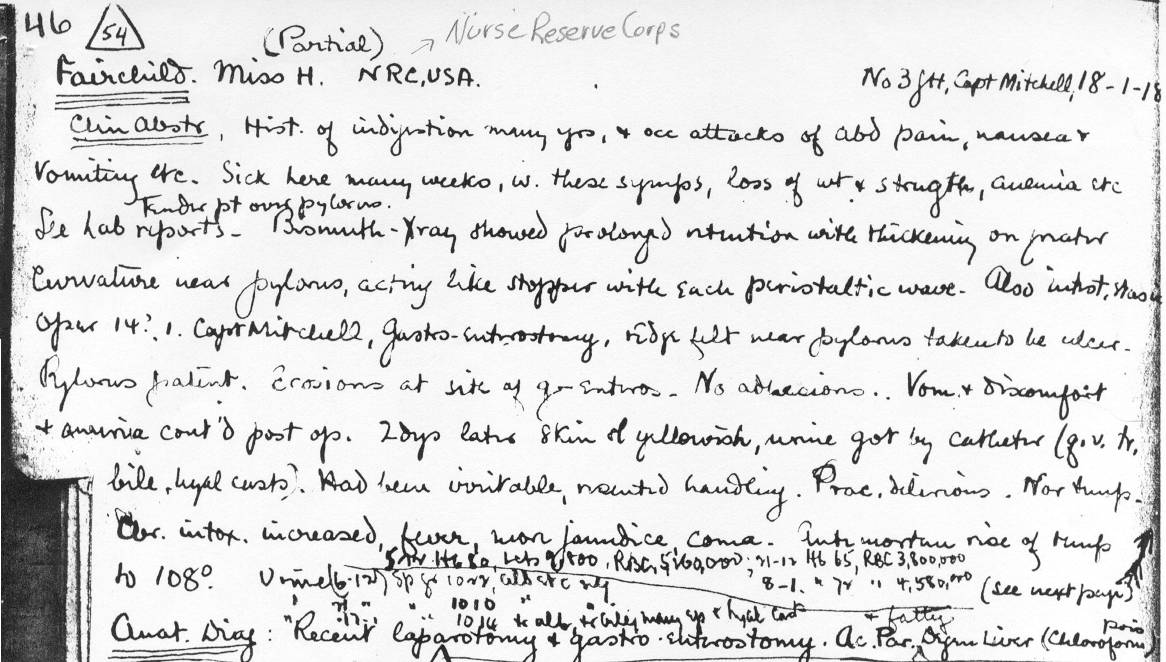 46 54
(Partial) → Nurse Reserve Corps
Fairchild. Miss H. NRC, USA. No 3 GH, Capt Mitchell, 18-1-18
Clin Abstr, Hist. of indigestion many yrs, & occ attacks of abd pain, nausea &
Vomiting etc. Sick here many weeks, w. these symps, loss of wt & strength, anemia etc
Tender pt over pylorus.
See Lab reports - Bismuth-Xray showed prolonged retention with thickening on greater
Curvature near pylorus, acting like stopper with each peristaltic wave. Also intest. stasis
Oper 14. 1. Capt Mitchell, Gastro-enterostomy, ridge felt near pylorus taken to be ulcer.
Pylorus patent. Erosions at site of g-enteros. No adhesions.. Vom. & discomfort
& anemia cont'd post op. 2 dys later skin yellowish, urine got by catheter (g.v. tr.
bile, hyal casts). Had been irritable, resented handling. Prac. delirious. Nor temp.
intox. increased, fever, more jaundice coma. Antemortem rise of temp
Hb 80, 800, RBC, 5,160,000; 21-12 Hb 65, RBC 3,800,000
to 108°. Urine (6-12) Sp gr 1022, alb etc neg 8-1. " 72 " 4,580,000 (see next page)
" " 1010 "
" " 1014 tr alb, many hyal cast & fatty
Anat. Diag: "Recent laparotomy & gastro-enterostomy. Ac. Par. Degen Liver (Chloroform pois